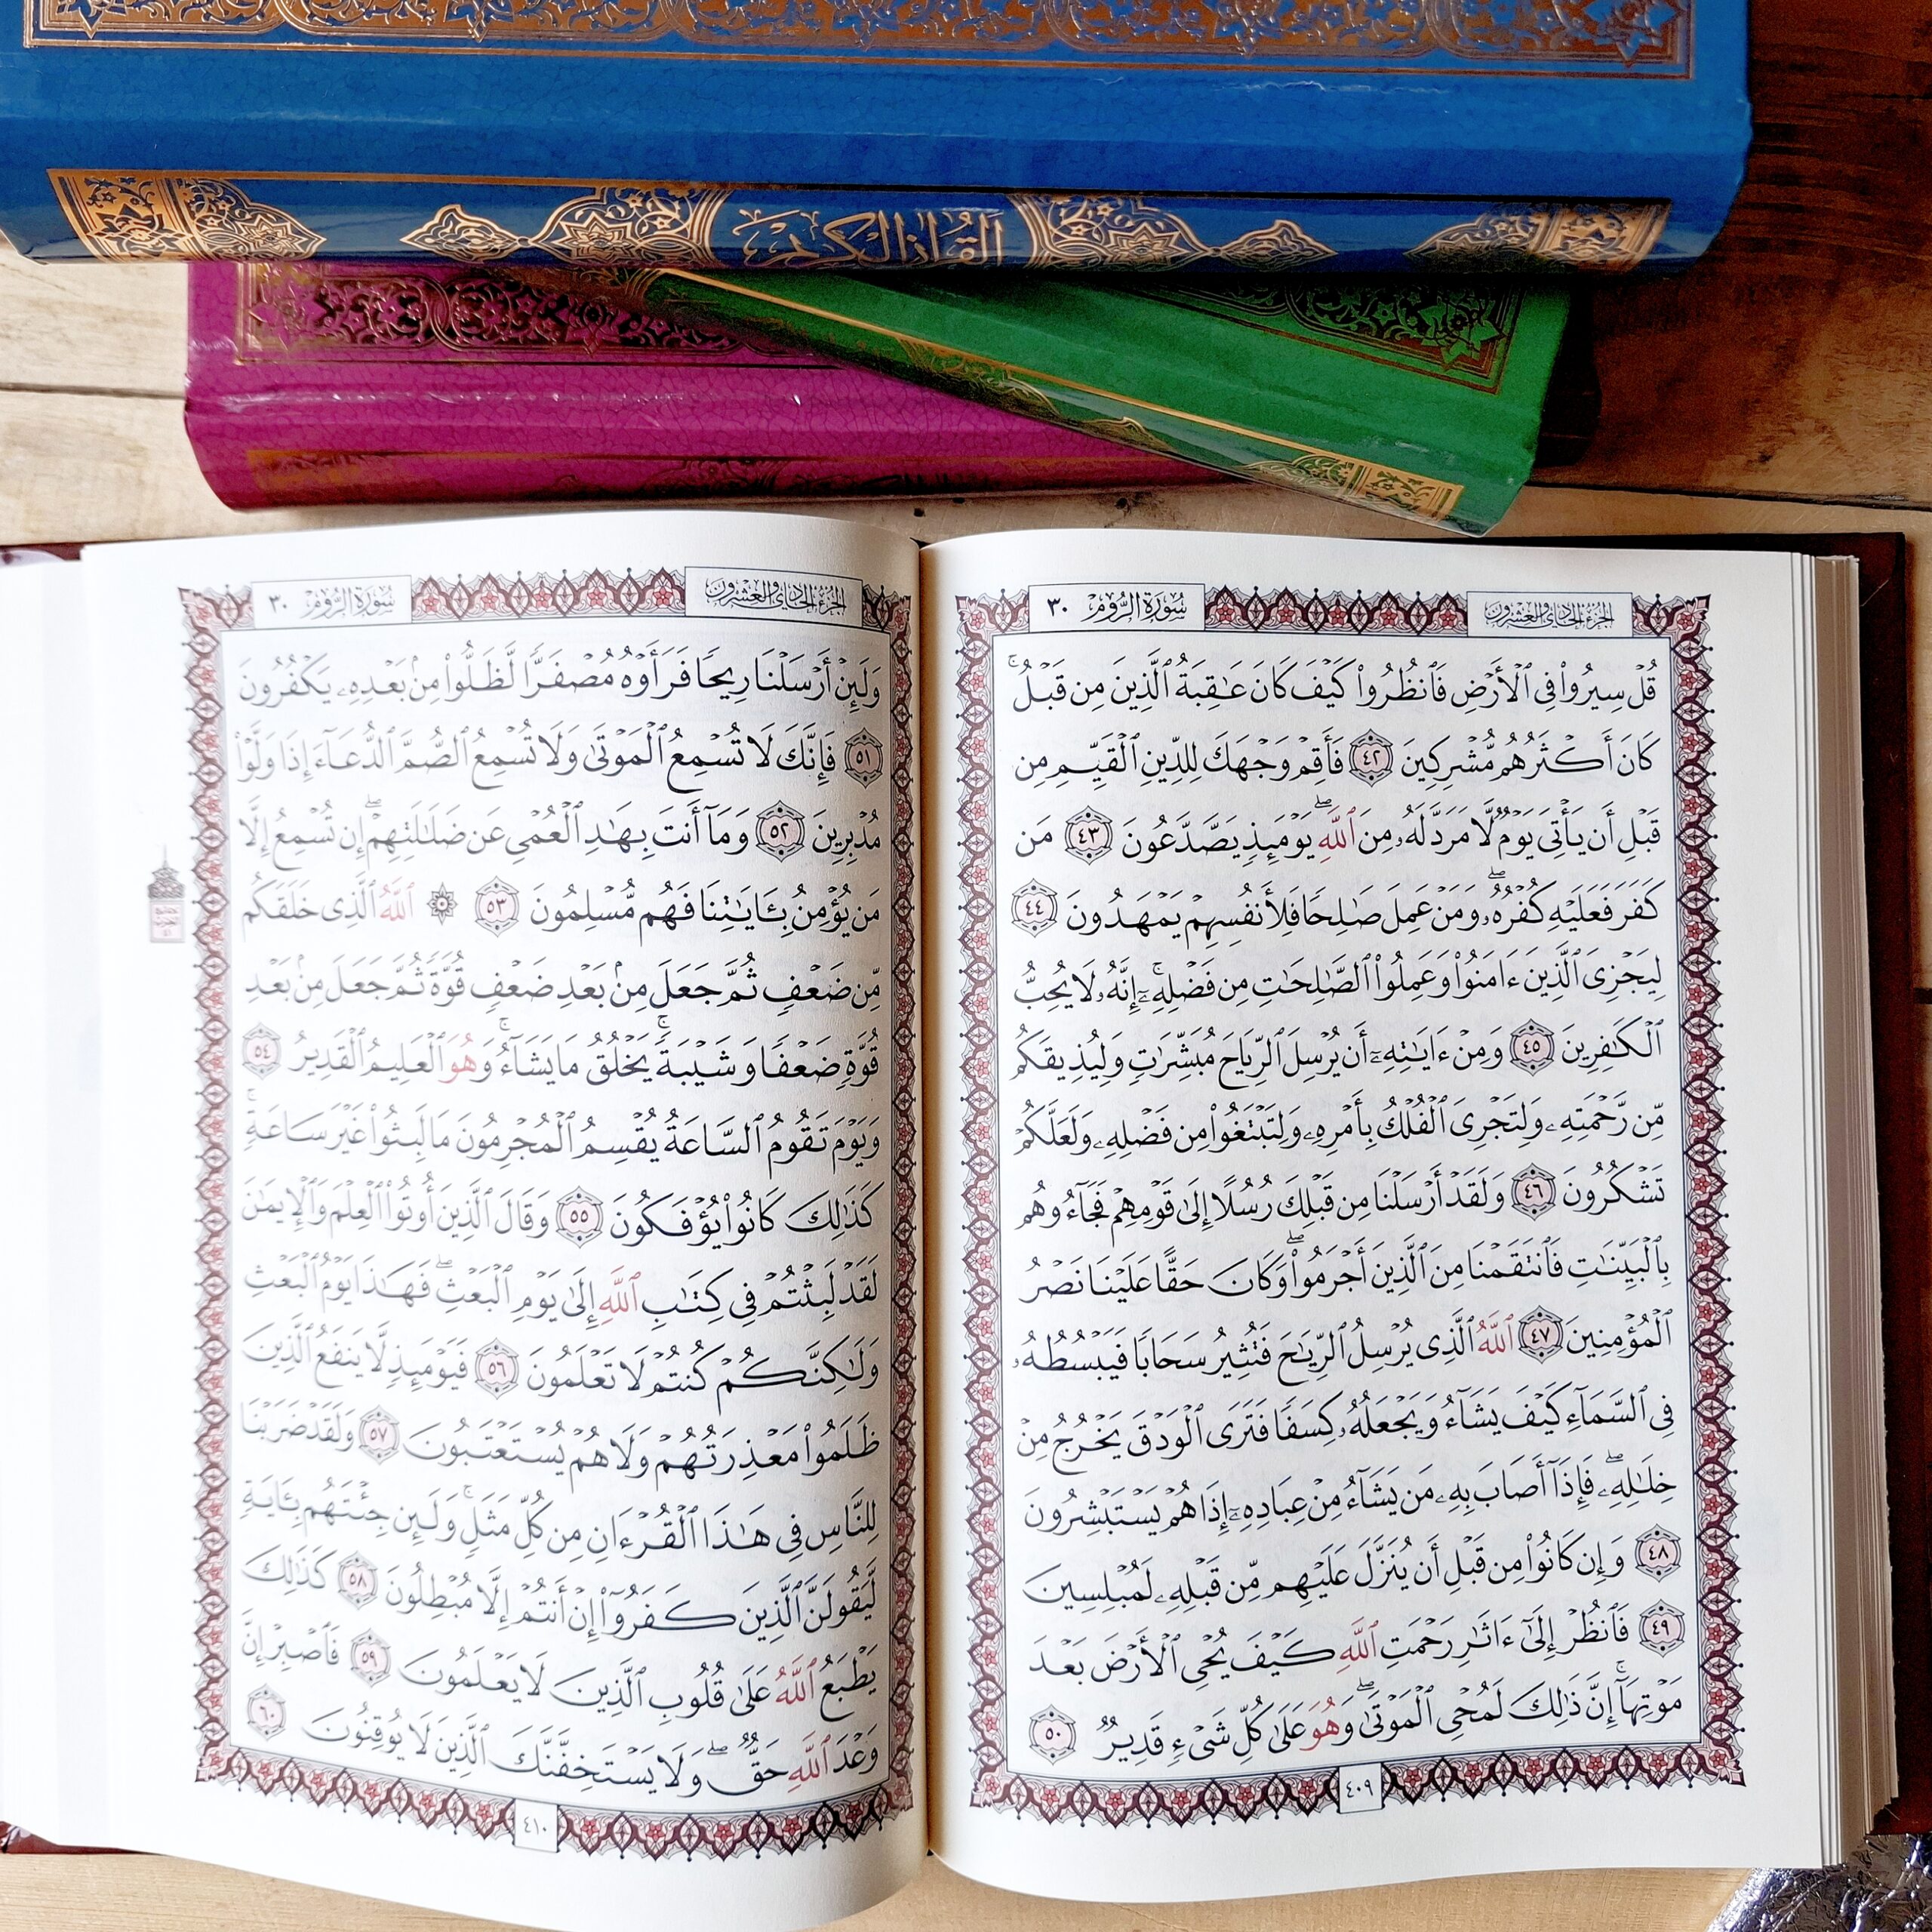 القرآن الكريم
الجزء الحادي والعشرون
سورة الروم ٣٠
قُلۡ سِيرُواْ فِي ٱلۡأَرۡضِ فَٱنظُرُواْ كَيۡفَ كَانَ عَٰقِبَةُ ٱلَّذِينَ مِن قَبۡلُۚ
كَانَ أَكۡثَرُهُم مُّشۡرِكِينَ ٤٢ فَأَقِمۡ وَجۡهَكَ لِلدِّينِ ٱلۡقَيِّمِ مِن
قَبۡلِ أَن يَأۡتِيَ يَوۡمٞ لَّا مَرَدَّ لَهُۥ مِنَ ٱللَّهِۖ يَوۡمَئِذٖ يَصَّدَّعُونَ ٤٣ مَن
كَفَرَ فَعَلَيۡهِ كُفۡرُهُۥۖ وَمَنۡ عَمِلَ صَٰلِحٗا فَلِأَنفُسِهِمۡ يَمۡهَدُونَ ٤٤
لِيَجۡزِيَ ٱلَّذِينَ ءَامَنُواْ وَعَمِلُواْ ٱلصَّٰلِحَٰتِ مِن فَضۡلِهِۦٓۚ إِنَّهُۥ لَا يُحِبُّ
ٱلۡكَٰفِرِينَ ٤٥ وَمِنۡ ءَايَٰتِهِۦٓ أَن يُرۡسِلَ ٱلرِّيَاحَ مُبَشِّرَٰتٖ وَلِيُذِيقَكُم
مِّن رَّحۡمَتِهِۦ وَلِتَجۡرِيَ ٱلۡفُلۡكُ بِأَمۡرِهِۦ وَلِتَبۡتَغُواْ مِن فَضۡلِهِۦ وَلَعَلَّكُمۡ
تَشۡكُرُونَ ٤٦ وَلَقَدۡ أَرۡسَلۡنَا مِن قَبۡلِكَ رُسُلًا إِلَىٰ قَوۡمِهِمۡ فَجَآءُوهُم
بِٱلۡبَيِّنَٰتِ فَٱنتَقَمۡنَا مِنَ ٱلَّذِينَ أَجۡرَمُواْۖ وَكَانَ حَقًّا عَلَيۡنَا نَصۡرُ
ٱلۡمُؤۡمِنِينَ ٤٧ ٱللَّهُ ٱلَّذِي يُرۡسِلُ ٱلرِّيَٰحَ فَتُثِيرُ سَحَابٗا فَيَبۡسُطُهُۥ
فِي ٱلسَّمَآءِ كَيۡفَ يَشَآءُ وَيَجۡعَلُهُۥ كِسَفٗا فَتَرَى ٱلۡوَدۡقَ يَخۡرُجُ مِنۡ
خِلَٰلِهِۦۖ فَإِذَآ أَصَابَ بِهِۦ مَن يَشَآءُ مِنۡ عِبَادِهِۦٓ إِذَا هُمۡ يَسۡتَبۡشِرُونَ
٤٨ وَإِن كَانُواْ مِن قَبۡلِ أَن يُنَزَّلَ عَلَيۡهِم مِّن قَبۡلِهِۦ لَمُبۡلِسِينَ
٤٩ فَٱنظُرۡ إِلَىٰٓ ءَاثَٰرِ رَحۡمَتِ ٱللَّهِ كَيۡفَ يُحۡيِ ٱلۡأَرۡضَ بَعۡدَ
مَوۡتِهَآۚ إِنَّ ذَٰلِكَ لَمُحۡيِ ٱلۡمَوۡتَىٰۖ وَهُوَ عَلَىٰ كُلِّ شَيۡءٖ قَدِيرٞ ٥٠
٤٠٩
الجزء الحادي والعشرون
سورة الروم ٣٠
وَلَئِنۡ أَرۡسَلۡنَا رِيحٗا فَرَأَوۡهُ مُصۡفَرّٗا لَّظَلُّواْ مِنۢ بَعۡدِهِۦ يَكۡفُرُونَ
٥١ فَإِنَّكَ لَا تُسۡمِعُ ٱلۡمَوۡتَىٰ وَلَا تُسۡمِعُ ٱلصُّمَّ ٱلدُّعَآءَ إِذَا وَلَّوۡاْ
مُدۡبِرِينَ ٥٢ وَمَآ أَنتَ بِهَٰدِ ٱلۡعُمۡيِ عَن ضَلَٰلَتِهِمۡۖ إِن تُسۡمِعُ إِلَّا
مَن يُؤۡمِنُ بِـَٔايَٰتِنَا فَهُم مُّسۡلِمُونَ ٥٣ ۞ ٱللَّهُ ٱلَّذِي خَلَقَكُم
مِّن ضَعۡفٖ ثُمَّ جَعَلَ مِنۢ بَعۡدِ ضَعۡفٖ قُوَّةٗ ثُمَّ جَعَلَ مِنۢ بَعۡدِ
قُوَّةٖ ضَعۡفٗا وَشَيۡبَةٗۚ يَخۡلُقُ مَا يَشَآءُۚ وَهُوَ ٱلۡعَلِيمُ ٱلۡقَدِيرُ ٥٤
وَيَوۡمَ تَقُومُ ٱلسَّاعَةُ يُقۡسِمُ ٱلۡمُجۡرِمُونَ مَا لَبِثُواْ غَيۡرَ سَاعَةٖۚ
كَذَٰلِكَ كَانُواْ يُؤۡفَكُونَ ٥٥ وَقَالَ ٱلَّذِينَ أُوتُواْ ٱلۡعِلۡمَ وَٱلۡإِيمَٰنَ
لَقَدۡ لَبِثۡتُمۡ فِي كِتَٰبِ ٱللَّهِ إِلَىٰ يَوۡمِ ٱلۡبَعۡثِۖ فَهَٰذَا يَوۡمُ ٱلۡبَعۡثِ
وَلَٰكِنَّكُمۡ كُنتُمۡ لَا تَعۡلَمُونَ ٥٦ فَيَوۡمَئِذٖ لَّا يَنفَعُ ٱلَّذِينَ
ظَلَمُواْ مَعۡذِرَتُهُمۡ وَلَا هُمۡ يُسۡتَعۡتَبُونَ ٥٧ وَلَقَدۡ ضَرَبۡنَا
لِلنَّاسِ فِي هَٰذَا ٱلۡقُرۡءَانِ مِن كُلِّ مَثَلٖۚ وَلَئِن جِئۡتَهُم بِـَٔايَةٖ
لَّيَقُولَنَّ ٱلَّذِينَ كَفَرُوٓاْ إِنۡ أَنتُمۡ إِلَّا مُبۡطِلُونَ ٥٨ كَذَٰلِكَ
يَطۡبَعُ ٱللَّهُ عَلَىٰ قُلُوبِ ٱلَّذِينَ لَا يَعۡلَمُونَ ٥٩ فَٱصۡبِرۡ إِنَّ
وَعۡدَ ٱللَّهِ حَقّٞۖ وَلَا يَسۡتَخِفَّنَّكَ ٱلَّذِينَ لَا يُوقِنُونَ ٦٠
٤١٠